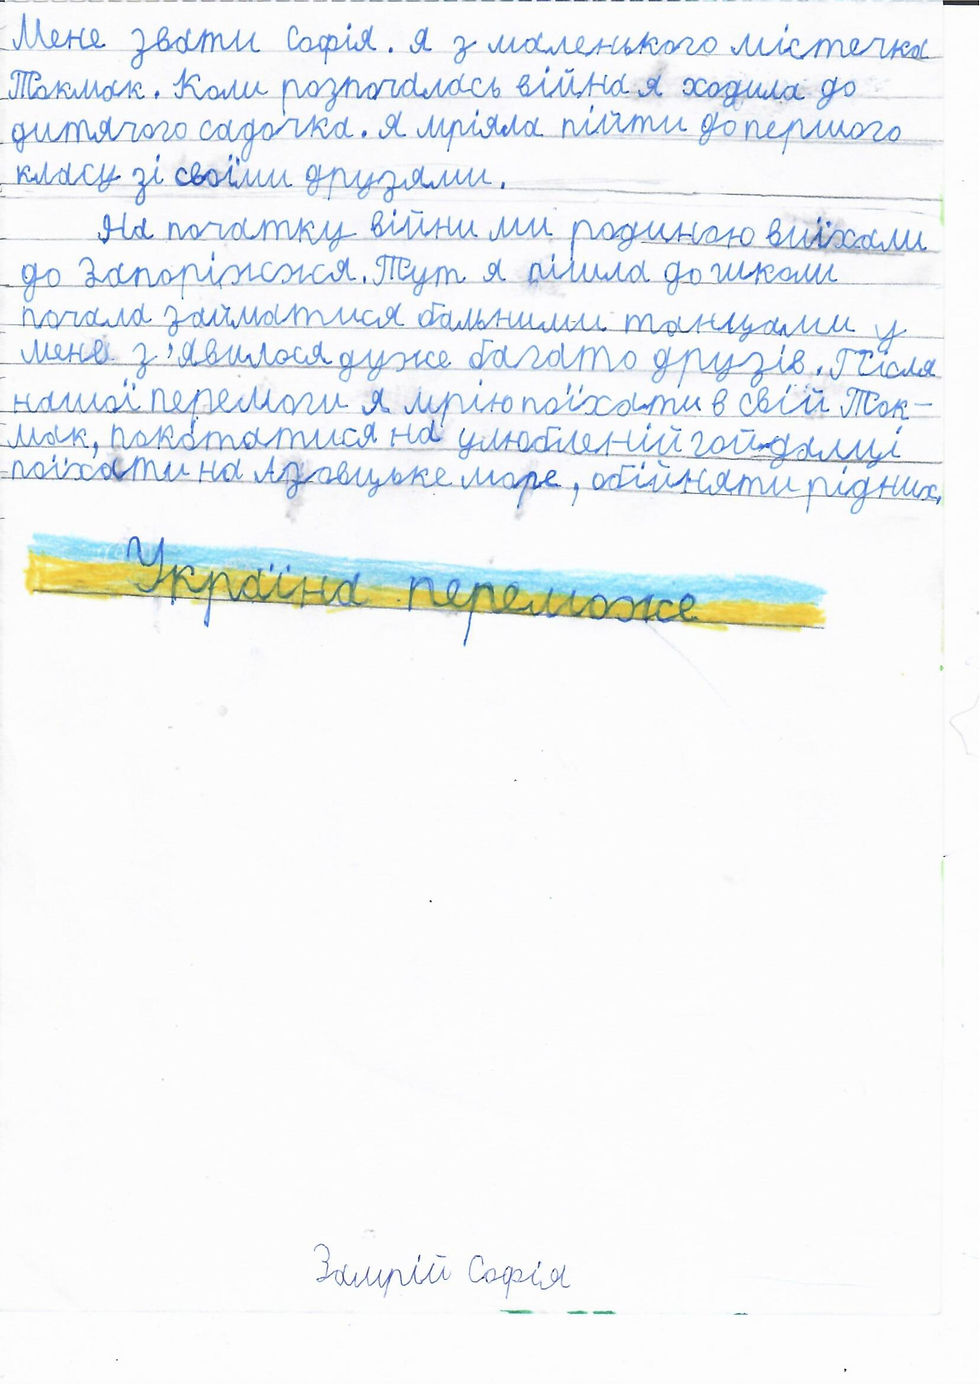 Мене звати Софія. Я з маленького містечка
Токмак. Коли розпочалась війна я ходила до
дитячого садочка. Я мріяла пійти до першого
класу зі своїми друзями.
На початку війни ми родиною виїхали
до Запоріжжя. Тут я пішла до школи
почала займатися бальними танцами у
мене з'явилося дуже багато друзів. Після
нашої перемоги я мрію поїхати в свій Ток-
мак, покататися на улюбленій гойдалці
поїхати на Азовцьке море, обійняти рідних.
Україна переможе
Замрій Софія